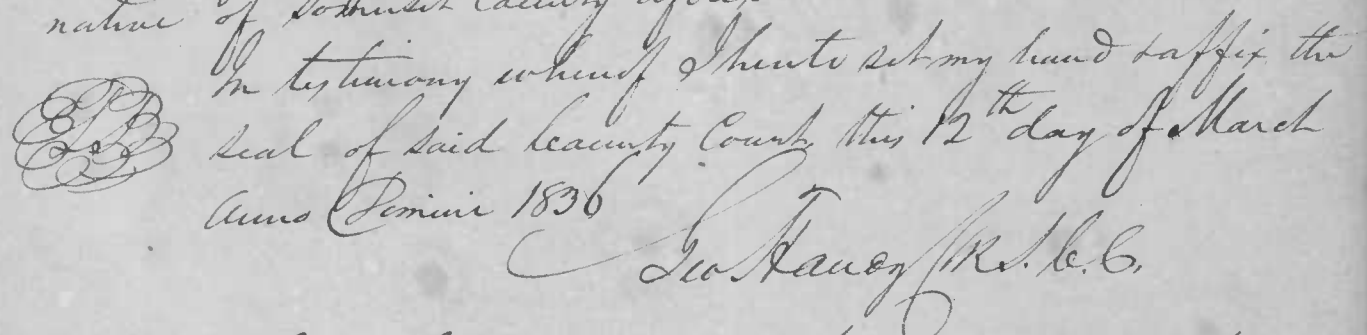 native of Somerset County afores
In testimony whereof I hereto set my hand & affix the
seal of said County Court, this 12th day of March
Anno Domini 1836
Geo Handy Clk S. C. C.